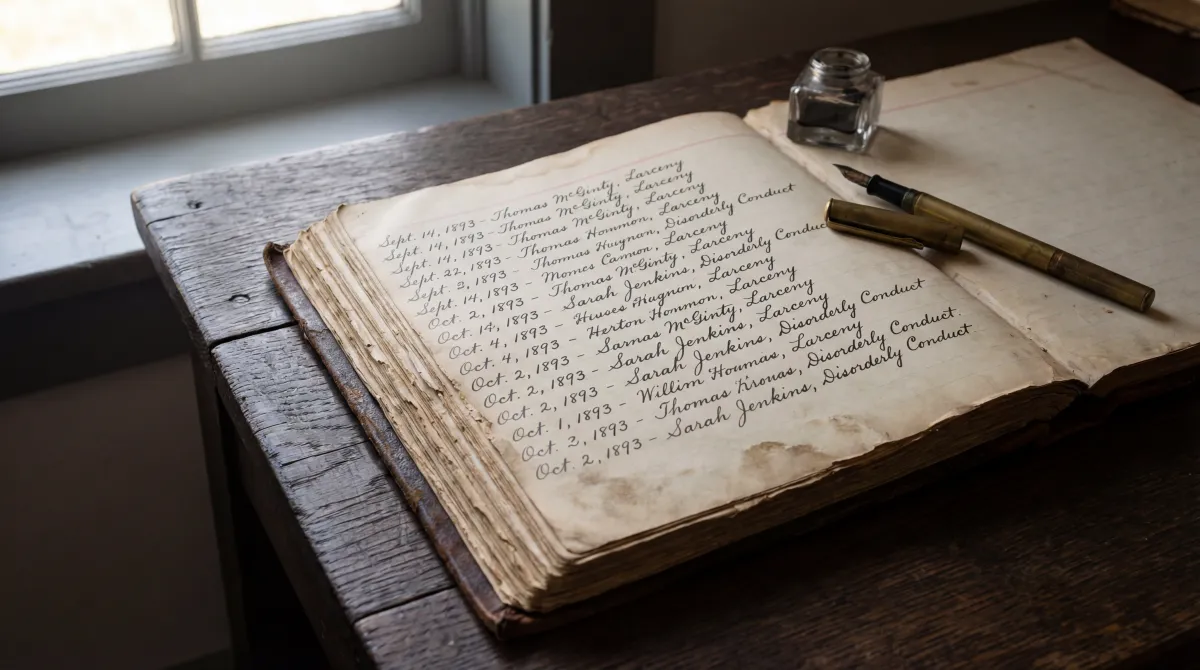 Sept. 14, 1893 - Thomas McGinty, Larceny
Sept. 14, 1893 - Thomas McGinty, Larceny
Sept. 14, 1893 - Thomas McGinty, Larceny
Sept. 22, 1893 - Thomas Hommon, Larceny
Sept. 2, 1893 - Thomas Huygnon, Disorderly Conduct
Sept. 14, 1893 - Momes Cammon, Larceny
Oct. 2, 1893 - Thomas McGinty, Larceny
Oct. 14, 1893 - Sarah Jenkins, Disorderly Conduc
Oct. 4, 1893 - Hugnon, Larceny
Oct. 4, 1893 - Herton Hommon, Larceny
Oct. 2, 1893 - Sarnas McGinty, Larceny
Oct. 2, 1893 - Sarah Jenkins, Larceny
Oct. 2, 1893 - Sarah Jenkins, Disorderly Conduct
Oct. 1, 1893 - Willim Houmas, Larceny
Oct. 2, 1893 - Thomas Disorderly Conduct.
Oct. 2, 1893 - Sarah Jenkins, Disorderly Conduct